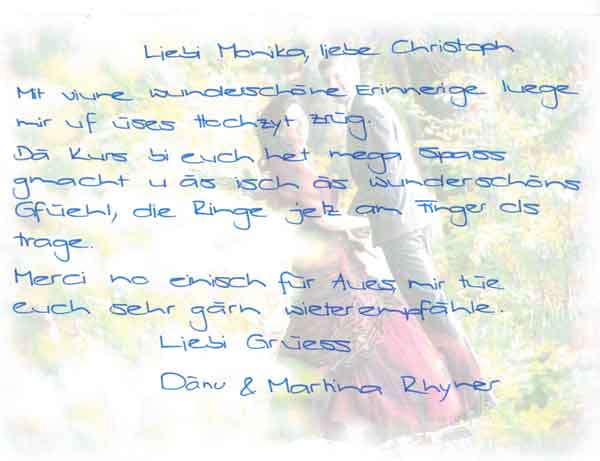 Liebi Monika, liebe Christoph
Mit viune wunderschöne Erinnerige luege
mir uf üses Hochzyt zrüg.
Dä Kurs bi euch het mega Spass
gmacht u äs isch äs wunderschöns
Gfüehl, die Ringe jetz am Finger
trage.
Merci no einisch für Aues, mir tüe
euch sehr gärn wieterempfähle.
Liebi Grüess
Dänu & Martina Rhyner